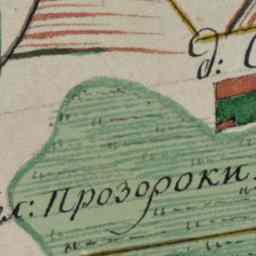 д: С
ил: Прозороки.